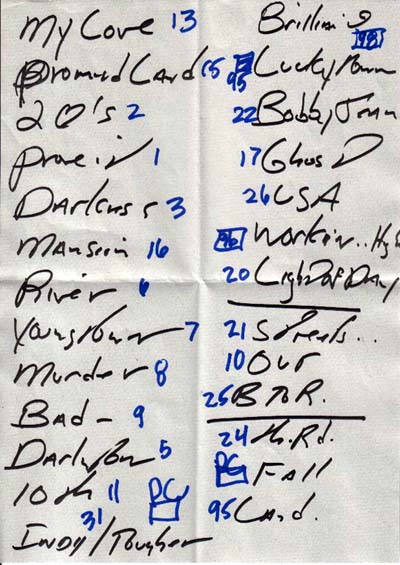 My Love 13
Promised Land 15
20's 2
Prove it 1
Darkness 3
Mansion 16
River 6
Youngstown 7
Murder 8
Bad - 9
Darlington 5
10th 11 PG
31
/Tougher
95
Lucky Town
98
22 Bobby Jean
17 Ghost
26 USA
Workin.. High
20 Light Of Day
21 Streets...
10 Out
25 B To R.
24 Th. Rd.
PG Fall
95 Land.